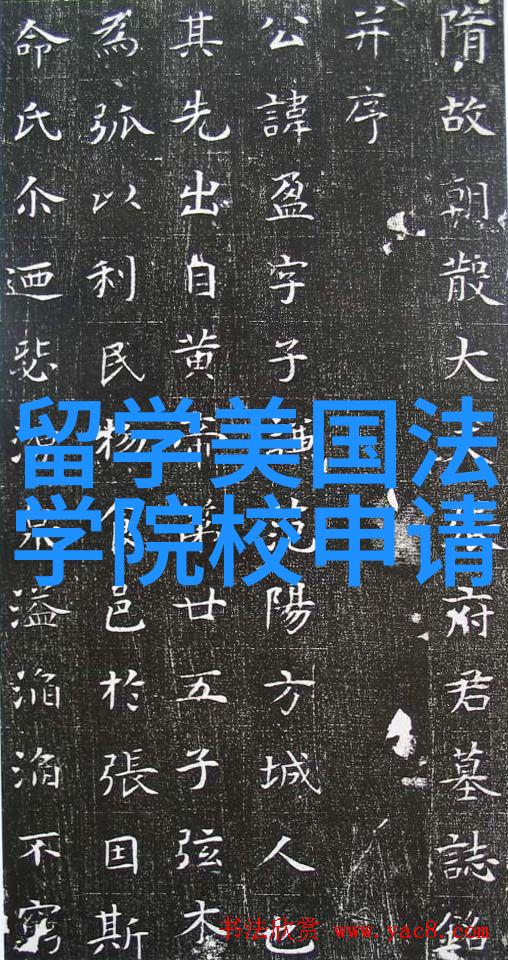 隋故朝散大府君墓誌銘
并序
公諱盈字子范陽方城人也
其先出自黃帝第廿五子弦木
為弧以利民物食邑於張因斯
命氏尒迺悲溢滔滔不窮
留学美国法
学院校申请
书法欣赏 www.yac8.com